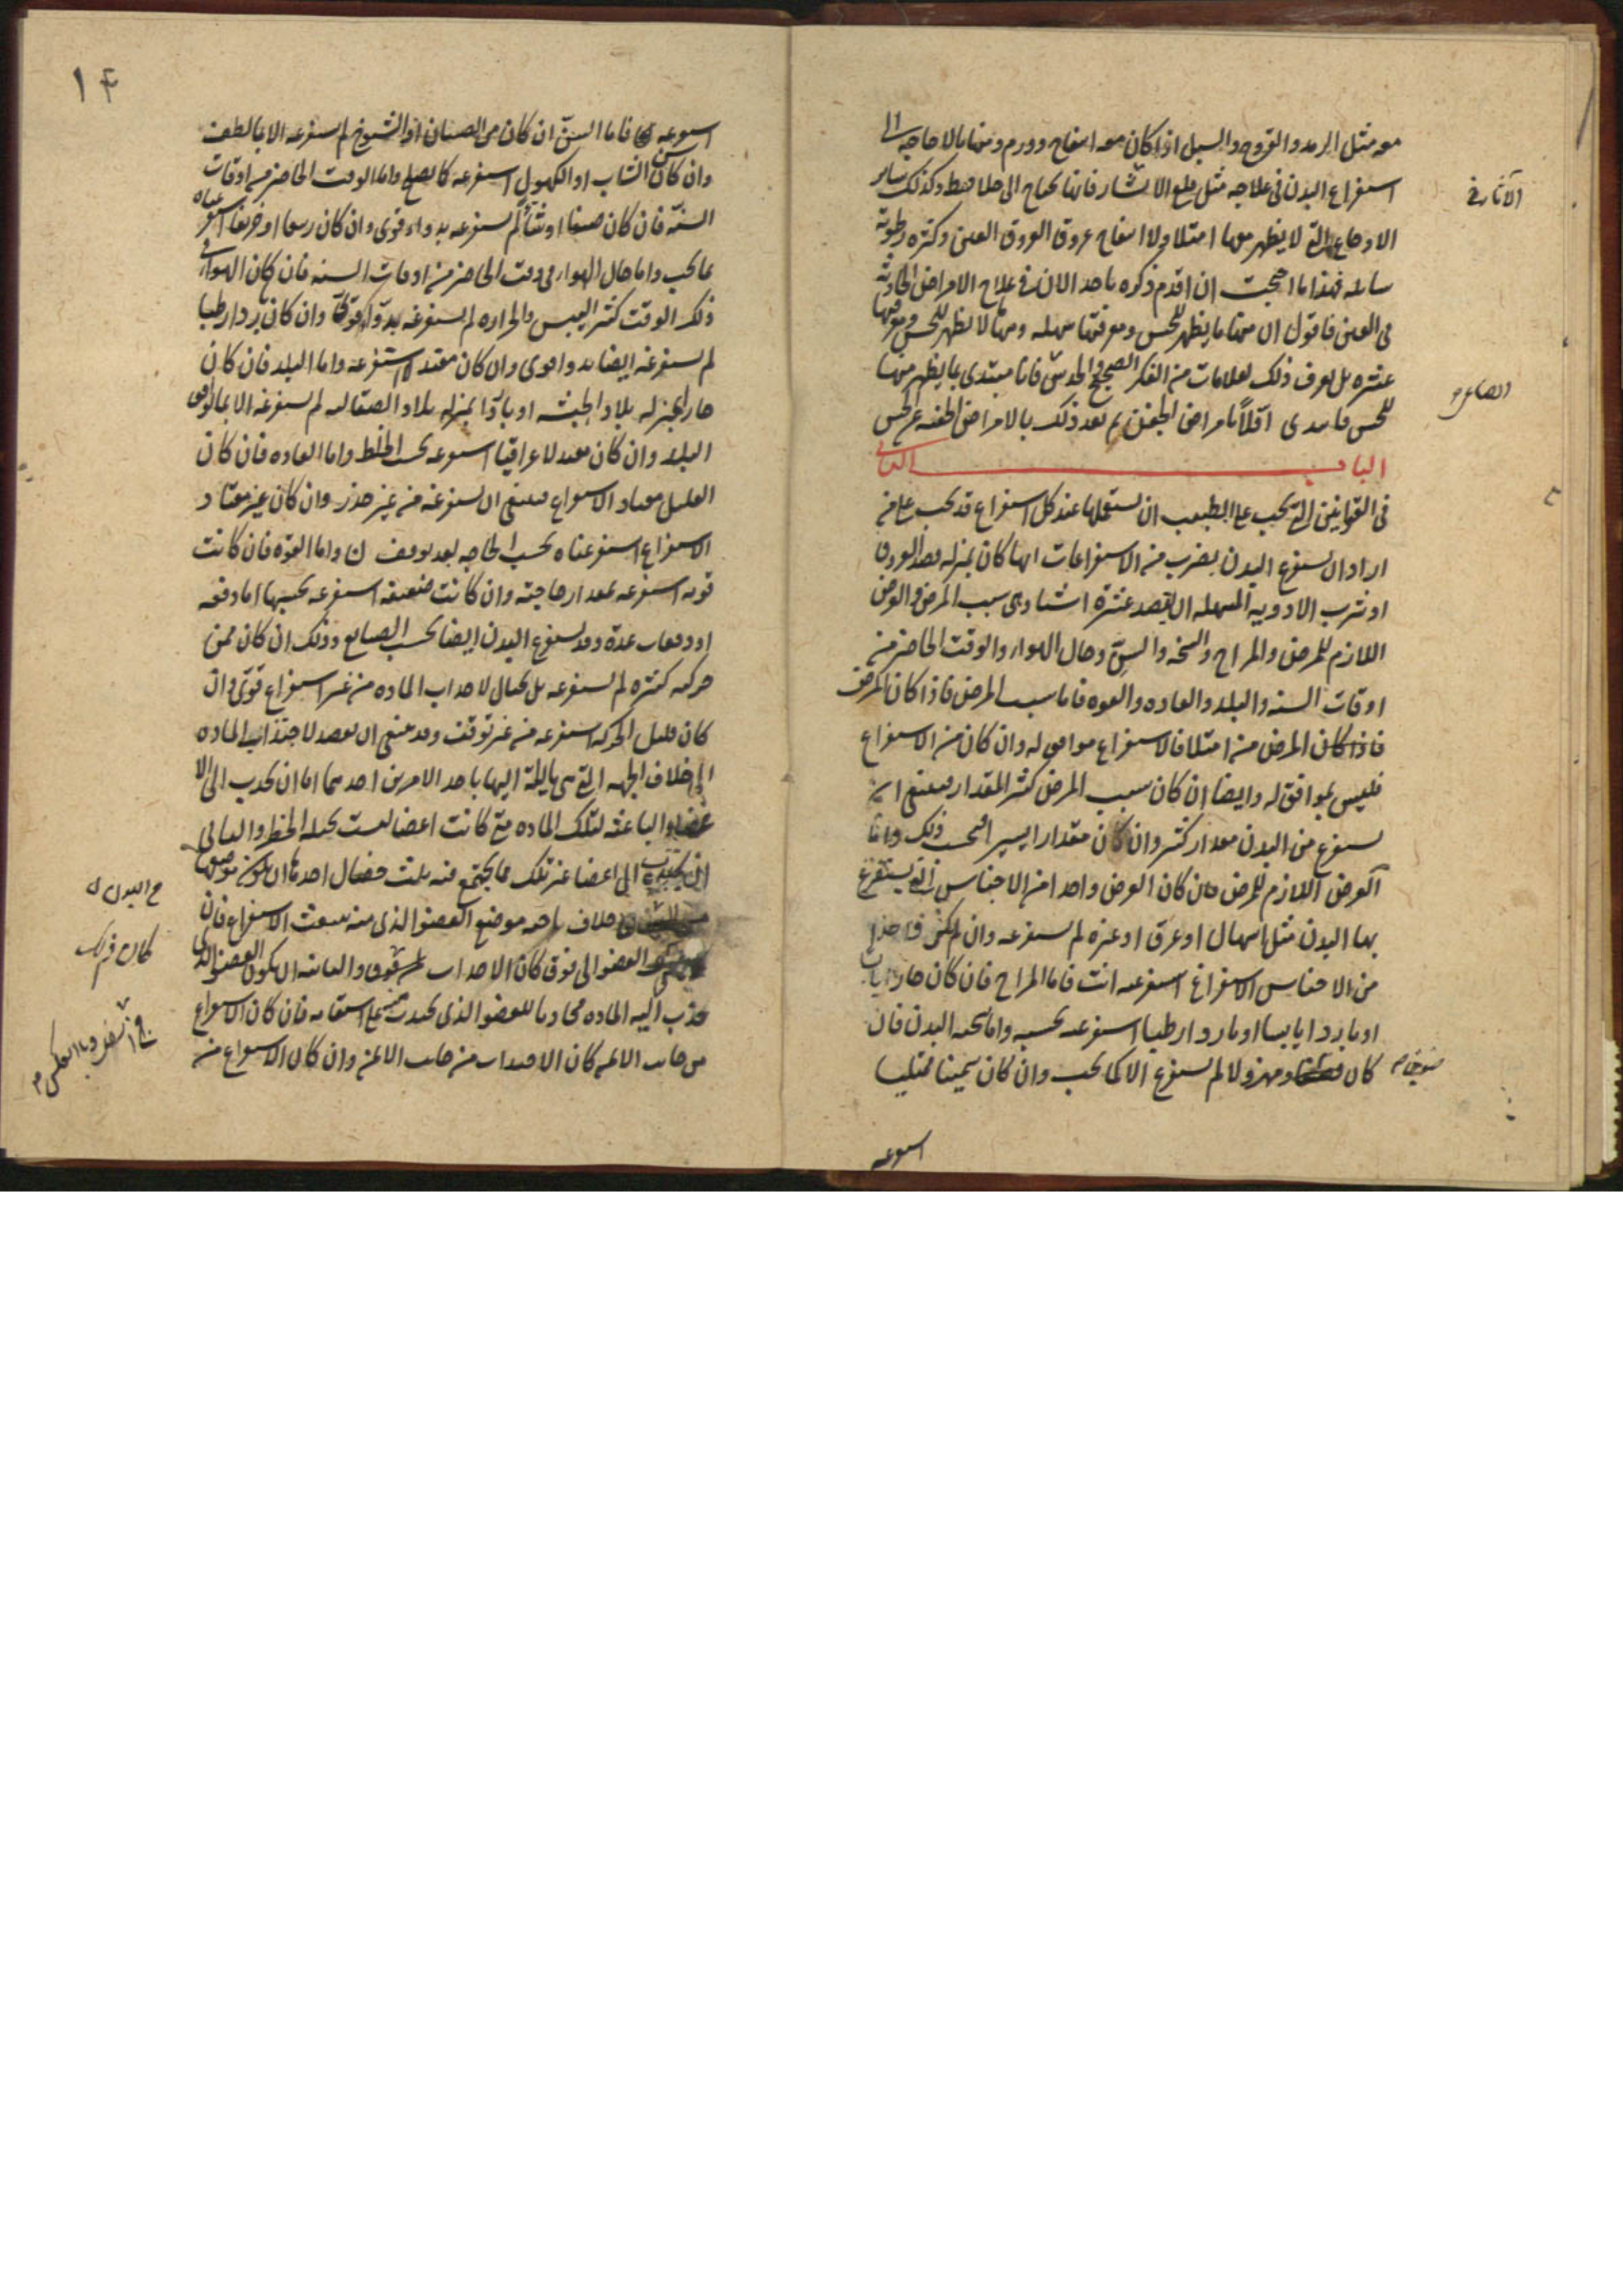 معه مثل الرمد والقروح والسبل اذا كان معه انتفاخ وورم ومنها بالا حاجه الى
استفراغ البدن فى علاجه مثل قلع الاثار فانها تحتاج الى جلا فقط وكذلك ساير
الاوجاع التى لا يظهر معها امتلا ولا انتفاخ عروق العين وكثره رطوبة
سايله فهذا ما احببت ان اقدم ذكره ناخذ الان فى علاج الامراض الحادثة
فى العين فاقول ان منها ما يظهر للحس ومعرفتها سهله ومنها لا يظهر للحس ومعرفتها
عسره بل يعرف ذلك بعلامات من الفكر الصحيح والحدس فانا مبتدى بما يظهر منها
للحس فابتدى اولا بامراض الجفن ثم بعد ذلك بالامراض الخفيه عن الحس
الباب الثانى
فى القوانين التى يجب على الطبيب ان يستعملها عند كل استفراغ قد يجب على من
اراد ان يستفرغ البدن بضرب من الاستفراغات ايها كان بمنزله فصد العروق
او شرب الادويه المسهله ان يقصد عشرة اشيا وهى سبب المرض والعرض
اللازم للمرض والمزاج والسحنه والسن وحال الهواء والوقت الحاضر من
اوقات السنه والبلد والعاده والقوه فاما سبب المرض فاذا كان المرض
فاذا كان المرض من امتلا فالاستفراغ موافق له وان كان من الاستفراغ
فليس بموافق له وايضا ان كان سبب المرض كثير المقدار فينبغى ان
يستفرغ من البدن مقدار كثير وان كان مقدارا يسيرا فبحسب ذلك واما
العرض اللازم للمرض فان كان العرض واحدا من الاجناس التى يستفرغ
بها البدن مثل اسهال او عرق او غيره لم يستفرغه وان لم يكن واحدا
من الاجناس الاستفراغ استفرغته انت فاما المزاج فان كان حارا يابسا
او باردا يابسا او باردا رطبا استفرغته بحسبه واما سحنه البدن فان
كان ومهزولا لم يستفرغ الا كما يجب وان كان سمينا ممتليا
استفرغه
١٤
استفرغه فاما السن ان كان من الصبيان او الشيوخ لم يستفرغه الا بما لطف
وان كان سن الشاب او الكهول استفرغه كما يصلح واما الوقت الحاضر من اوقات
السنة فان كان صيفا او شتا لم يستفرغه بدواء قوى وان كان ربيعا او خريفا استفرغناه
بما يجب واما حال الهواء فى وقت الحاضر من اوقات السنه فان كان الهواء فى
ذلك الوقت كثير اليبس والحراره لم يستفرغه بدواء قوى وان كان باردا رطبا
لم يستفرغه ايضا بدوا قوى وان كان معتدلا استفرغه واما البلد فان كان
حارا بمنزله بلاد الحبشه او باردا بمنزله بلاد الصقالبه لم يستفرغه الا بما يوافق
البلد وان كان معتدلا عراقيا استفرغه بحسب الخلط واما العاده فان كان
العليل معتاد الاستفراغ فينبغى ان يستفرغه من غير حذر وان كان غير معتاد
الاستفراغ استفرغناه بحسب الحاجه بعد توقف واما القوه فان كانت
قويه استفرغه بمقدار حاجته وان كانت ضعيفه استفرغه بحسبها اما دفعه
او دفعات عدة وقد يستفرغ البدن ايضا بحسب الصنايع وذلك ان كان ممن
حركه كثيره لم يستفرغه بل يحتال لاجذاب الماده من غير استفراغ قوى وان
كان قليل الحركه استفرغه من غير توقف وقد ينبغى ان يقصد لاجتذاب الماده
الى خلاف الجهه التى هى مايلة اليها باحد الامرين احدهما اما ان يجذب الى الا
عضا الباعثه لتلك الماده متى كانت اعضا ليست بجليله الخطر والثانى
ان يجتذب الى اعضا غير تلك مما يجتمع فيه ثلث خصال احدها ان يكون موضعها
خلاف ناحيه موضع العضو الذى منه ينبعث الاستفراغ فان
العضو الى فوق كان الاجذاب فوق والثانيه ان يكون العضو الذى
يجذب اليه الماده محاديا للعضو الذى يجذب منه على استقامه فان كان الاستفراغ
من جانب الايمن كان الاجذاب من جانب الايمن وان كان الاستفراغ من